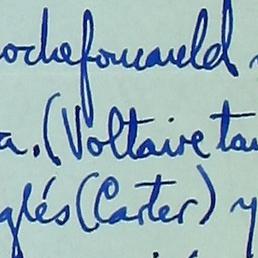 ochefoucauld
a. (Voltaire ta
glés (Carter) y